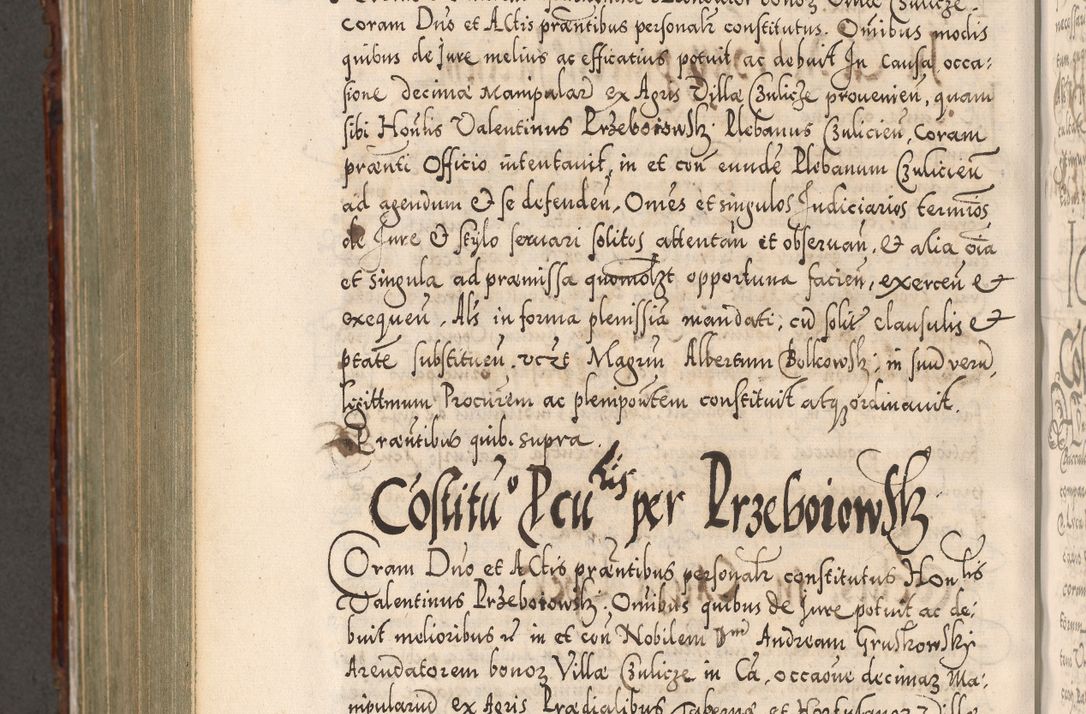 Coram Dno et Actis præntibus personalr constitutus. Omibus modis
quibus de Jure melius ac efficatius potuit ac debuit In causa occa-
sione decimæ Manipular ex Agris Villæ Czulicze prouenien, quam
sibi Honlis Valentinus Przeboiowsk: Plebanus Czulicien, coram
prænti Officio intentauit, in et con eunde Plebanum Czulicien
ad agendum & se defenden, Omes et singulos Judiciarios termios
de Jure & stylo seruari solitos attentan et obseruan, & alia oia
et singula ad præmissa quomolzt opportuna facien, exercen &
exequen. Als in forma plenissia mandati, cu solit clausulis &
ptate substituen. vczt Magrum Albertum Bolkowsk: in suu veru,
legittmum Procurem ac plempontem constituit atqz ordinauit.
Præntibus quib. supra.
Costitu° Pcu lis per Przeboiowsk
Coram Dno et Actis præntibus personalr constitutus Honlis
Valentinus Przeboiowsk: Omibus quibus de Jure potuit ac de-
buit melioribus in et con Nobilem Dnm Andream Gruskowsky
Arendatorem bonoz Villæ Czulicze in Ca, occaone decimaz Ma-
nipulariu ex Agris Prædialibus Tabernæ et Hortulanoz Villæ